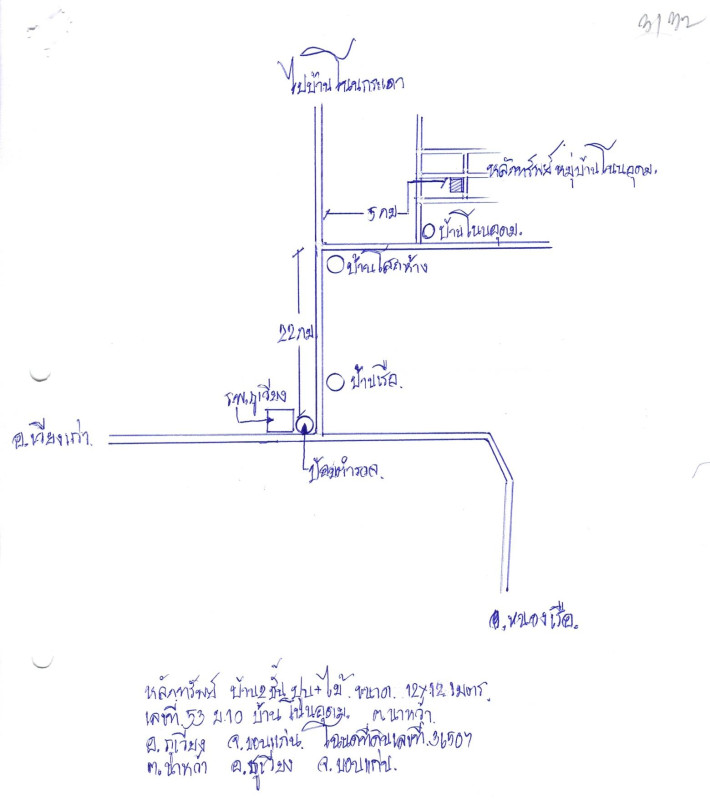 3/32
ไปบ้านโนนกระเดา
หลักทรัพย์ หมู่บ้านโนนอุดม.
5 กม
บ้านโนนอุดม.
บ้านโสกห้าง
22 กม
บ้านเรือ.
รพ.ภูเวียง
อ.เวียงเก่า.
ป้อมตำรวจ.
อ.หนองเรือ.
หลักทรัพย์ บ้าน 2 ชั้น ปูน+ไม้. ขนาด. 12x12 เมตร.
เลขที่. 53 ม.10 บ้านโนนอุดม. ต.นาหว้า.
อ.ภูเวียง จ.ขอนแก่น. โฉนดที่ดินเลขที่. 36507
ต.นาหว้า อ.ภูเวียง จ.ขอนแก่น.